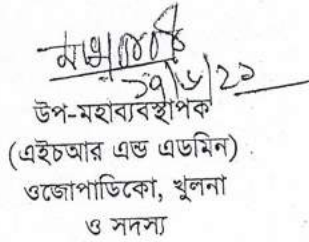 ১৭/৮/২১
উপ-মহাব্যবস্থাপক
(এইচআর এন্ড এডমিন)
ওজোপাডিকো, খুলনা
ও সদস্য